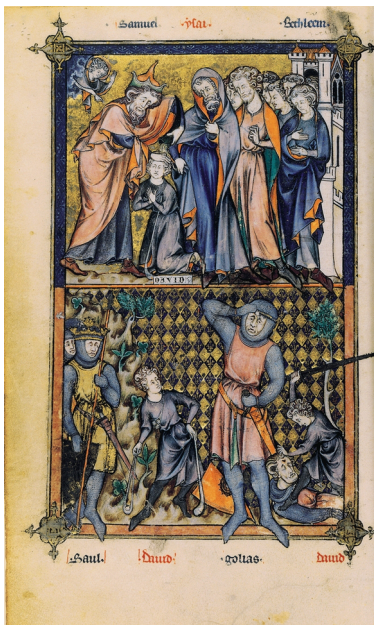 Samuel ysai Bethleem
DAVID
Saul david golias david